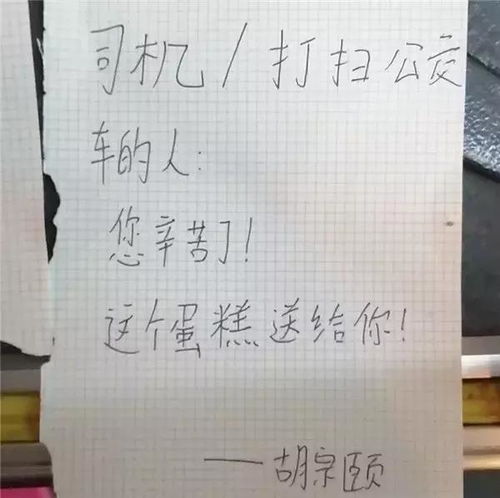 司机/打扫公交
车的人:
您辛苦了!
这个蛋糕送给你!
——胡宗颐